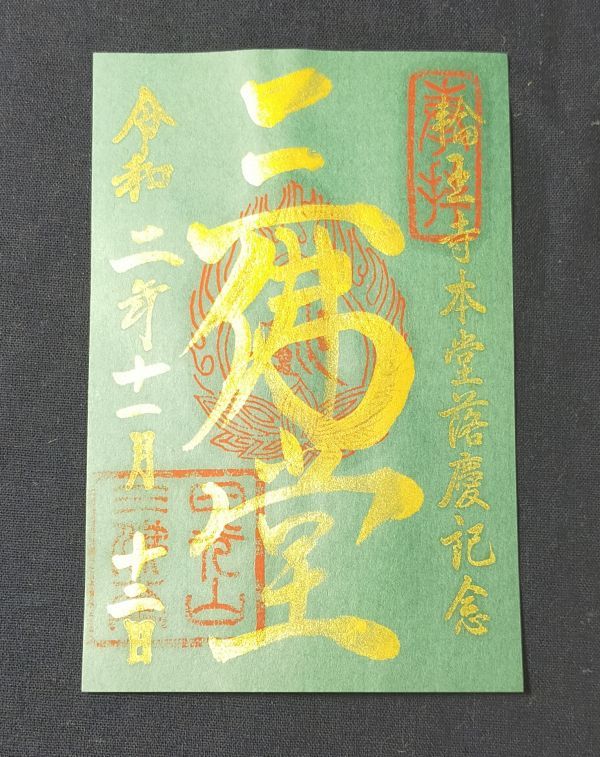 奉拝
輪王寺本堂落慶記念
三佛堂
令和二年十一月十二日
日光山
三佛堂